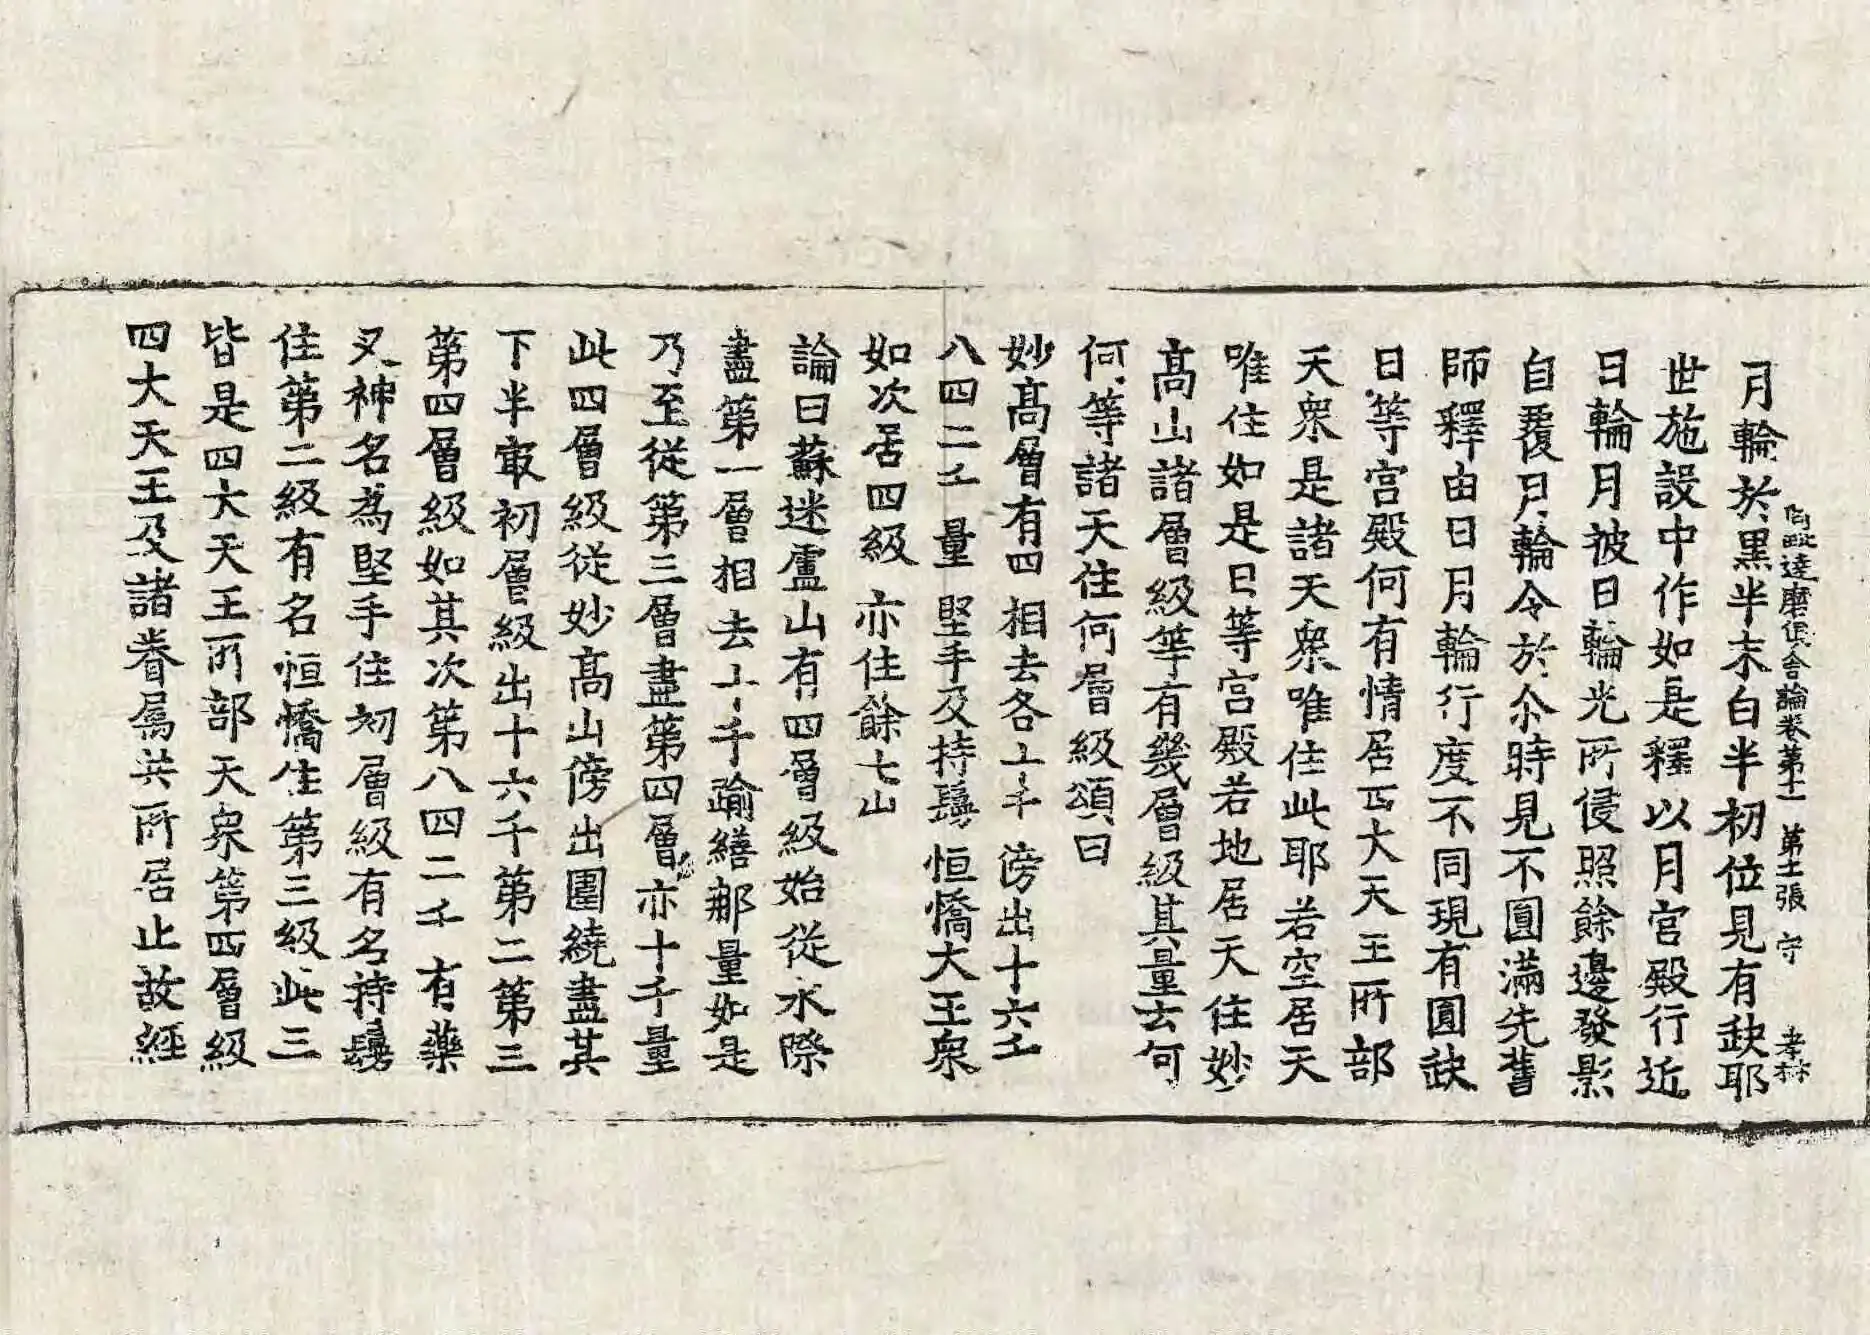 月輪於黑半末白半初位見有缺耶
阿毗達磨俱舍論卷第十一 第十張 守 孝林
世施設中作如是釋以月宮殿行近
日輪月被日輪光所侵照餘邊發影
自覆月輪令於尒時見不圓滿先舊
師釋由日月輪行度不同現有圓缺
日等宮殿何有情居四大天王所部
天衆是諸天衆唯住此耶若空居天
唯住如是日等宮殿若地居天住妙
高山諸層級等有幾層級其量云何
何等諸天住何層級頌曰
妙高層有四 相去各十千 傍出十六千
八四二千量 堅手及持鬘 恒憍大王衆
如次居四級 亦住餘七山
論曰蘇迷盧山有四層級始從水際
盡第一層相去十千踰繕那量如是
乃至從第三層盡第四層亦十千量
此四層級從妙高山傍出圍繞盡其
下半㝡初層級出十六千第二第三
第四層級如其次第八四二千有藥
叉神名爲堅手住初層級有名持鬘
住第二級有名恒憍住第三級此三
皆是四大天王所部天衆第四層級
四大天王及諸眷屬共所居止故經